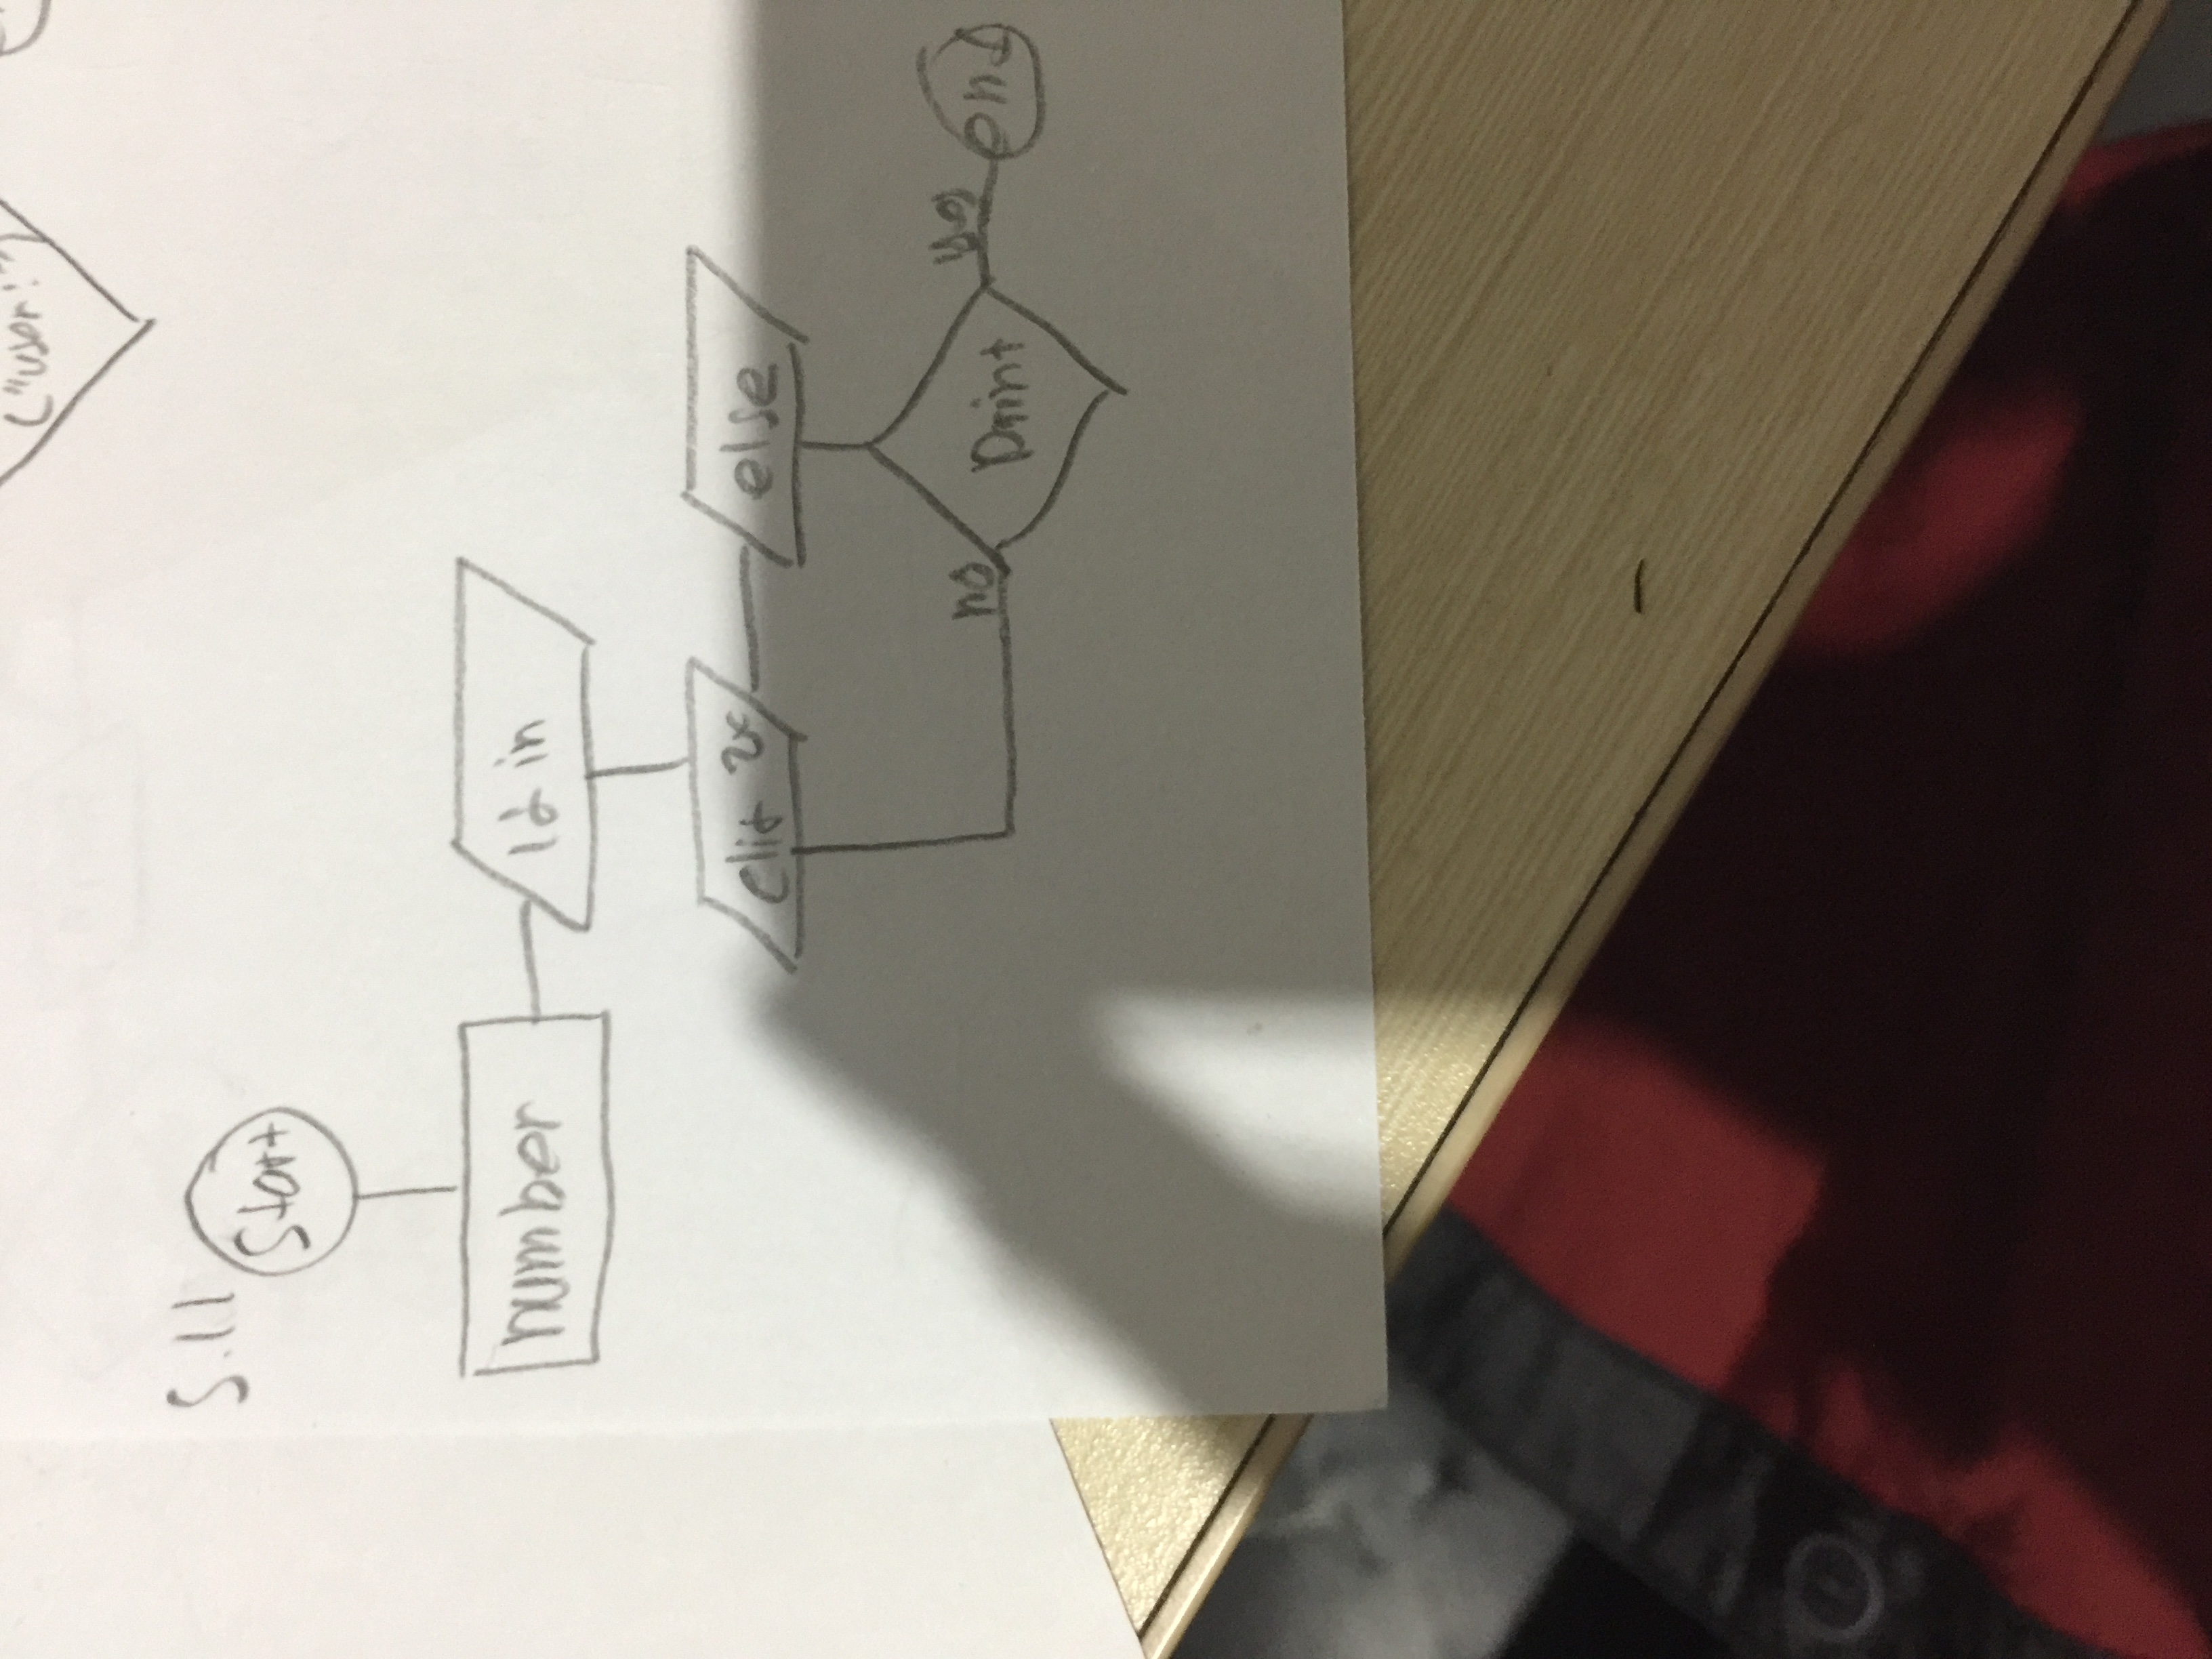 ("user!")
5.11
Start
number
id in
elif 2x
else
no
Print
yes
end